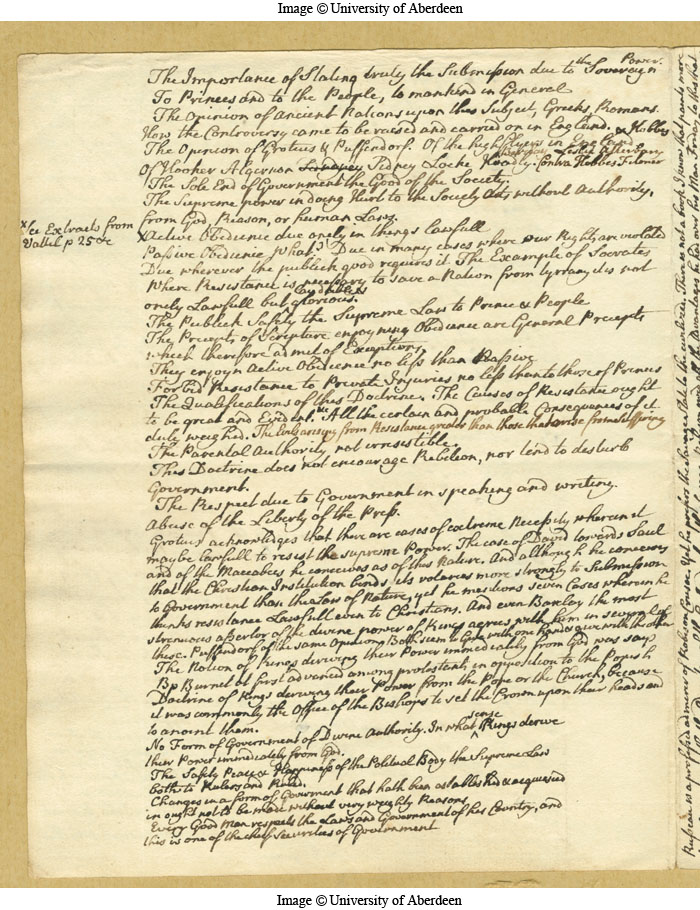 Image © University of Aberdeen
Power.
The Importance of Stating truly the Submission due to the Sovereign
To Princes and to the People, to mankind in General
The Opinion of Ancient Nations upon this Subject, Greeks, Romans.
How the Controversy came to be raised and carried on in England. & Hobbes
The Opinion of Grotius & Puffendorf. Of the high flyers in England
Of Hooker Algernon Sidney Locke Hoadly. Contra Hobbes Filmer
The Sole End of Government the Good of the Society.
The Supreme power in doing Hurt to the Society Acts without Authority,
from God, Reason, or human Laws.
x See Extracts from
Vattel p 25 &c
x Active Obedience due onely in things lawfull
Passive Obedience what? Due in many cases where our Rights are violated
Due wherever the publick good requires it. The Example of Socrates
Where Resistance is necessary to save a Nation from tyrrany it is not
onely Lawfull but laudable & glorious.
The Publick Safety the Supreme Law to Prince & People
The Precepts of Scripture enjoyning Obedience are General Precepts
which therefore admit of Exceptions,
They enjoyn Active Obedience no less than Passive
Forbid Resistance to Private Injuries no less than to those of Princes
The Qualifications of this Doctrine. The Causes of Resistance ought
to be great and Evident. All the certain and probable Consequences of it
duly weighed. The Evils arising from Resistance greater than those that arise from suffering
The Parental Authority not irresistible.
This Doctrine does not encourage Rebelion, nor tend to disturb
Government.
The Respect due to Government in speaking and writing.
Abuse of the Liberty of the Press.
Grotius acknowledges that there are cases of extreme Necessity wherein it
may be lawfull to resist the supreme Power. The case of David towards Saul
and of the Maccabees he conceives as of this Nature. And although he conceives
that the Christian Institution binds its votaries more strongly to Submission
to Government than the Law of Nature, yet he mentions seven Cases wherein he
thinks resistance Lawfull even to Christians. And even Barclay the most
strenuous assertor of the divine power of Kings agrees with him in several of
these. Puffendorf of the same Opinion. Both seem to Give with one hand & with the other
The Notion of Kings deriving their Power immediately from God was says
Bp Burnet at first advanced among protestants in opposition to the Popish
Doctrine of Kings deriving their Power from the Pope or the Church, because
it was commonly the Office of the Bishops to set the Crown upon their heads and
to anoint them.
No Form of Government of Divine Authority. In what sense Kings derive
their Power immediately from God.
The Safety Peace & Happiness of the Political Body the Supreme Law
both to Rulers and Ruled.
Changes in a form of Goverment that hath been established & acquiesced
in ought not to be made without very weighty Reasons
Every Good Man respects the Laws and Government of his Country, and
this is one of the chief Securities of Government
Image © University of Aberdeen